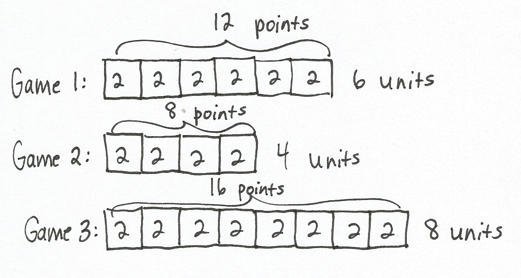 12 points
Game 1: 2 2 2 2 2 2 6 units
8 points
Game 2: 2 2 2 2 4 units
16 points
Game 3: 2 2 2 2 2 2 2 2 8 units